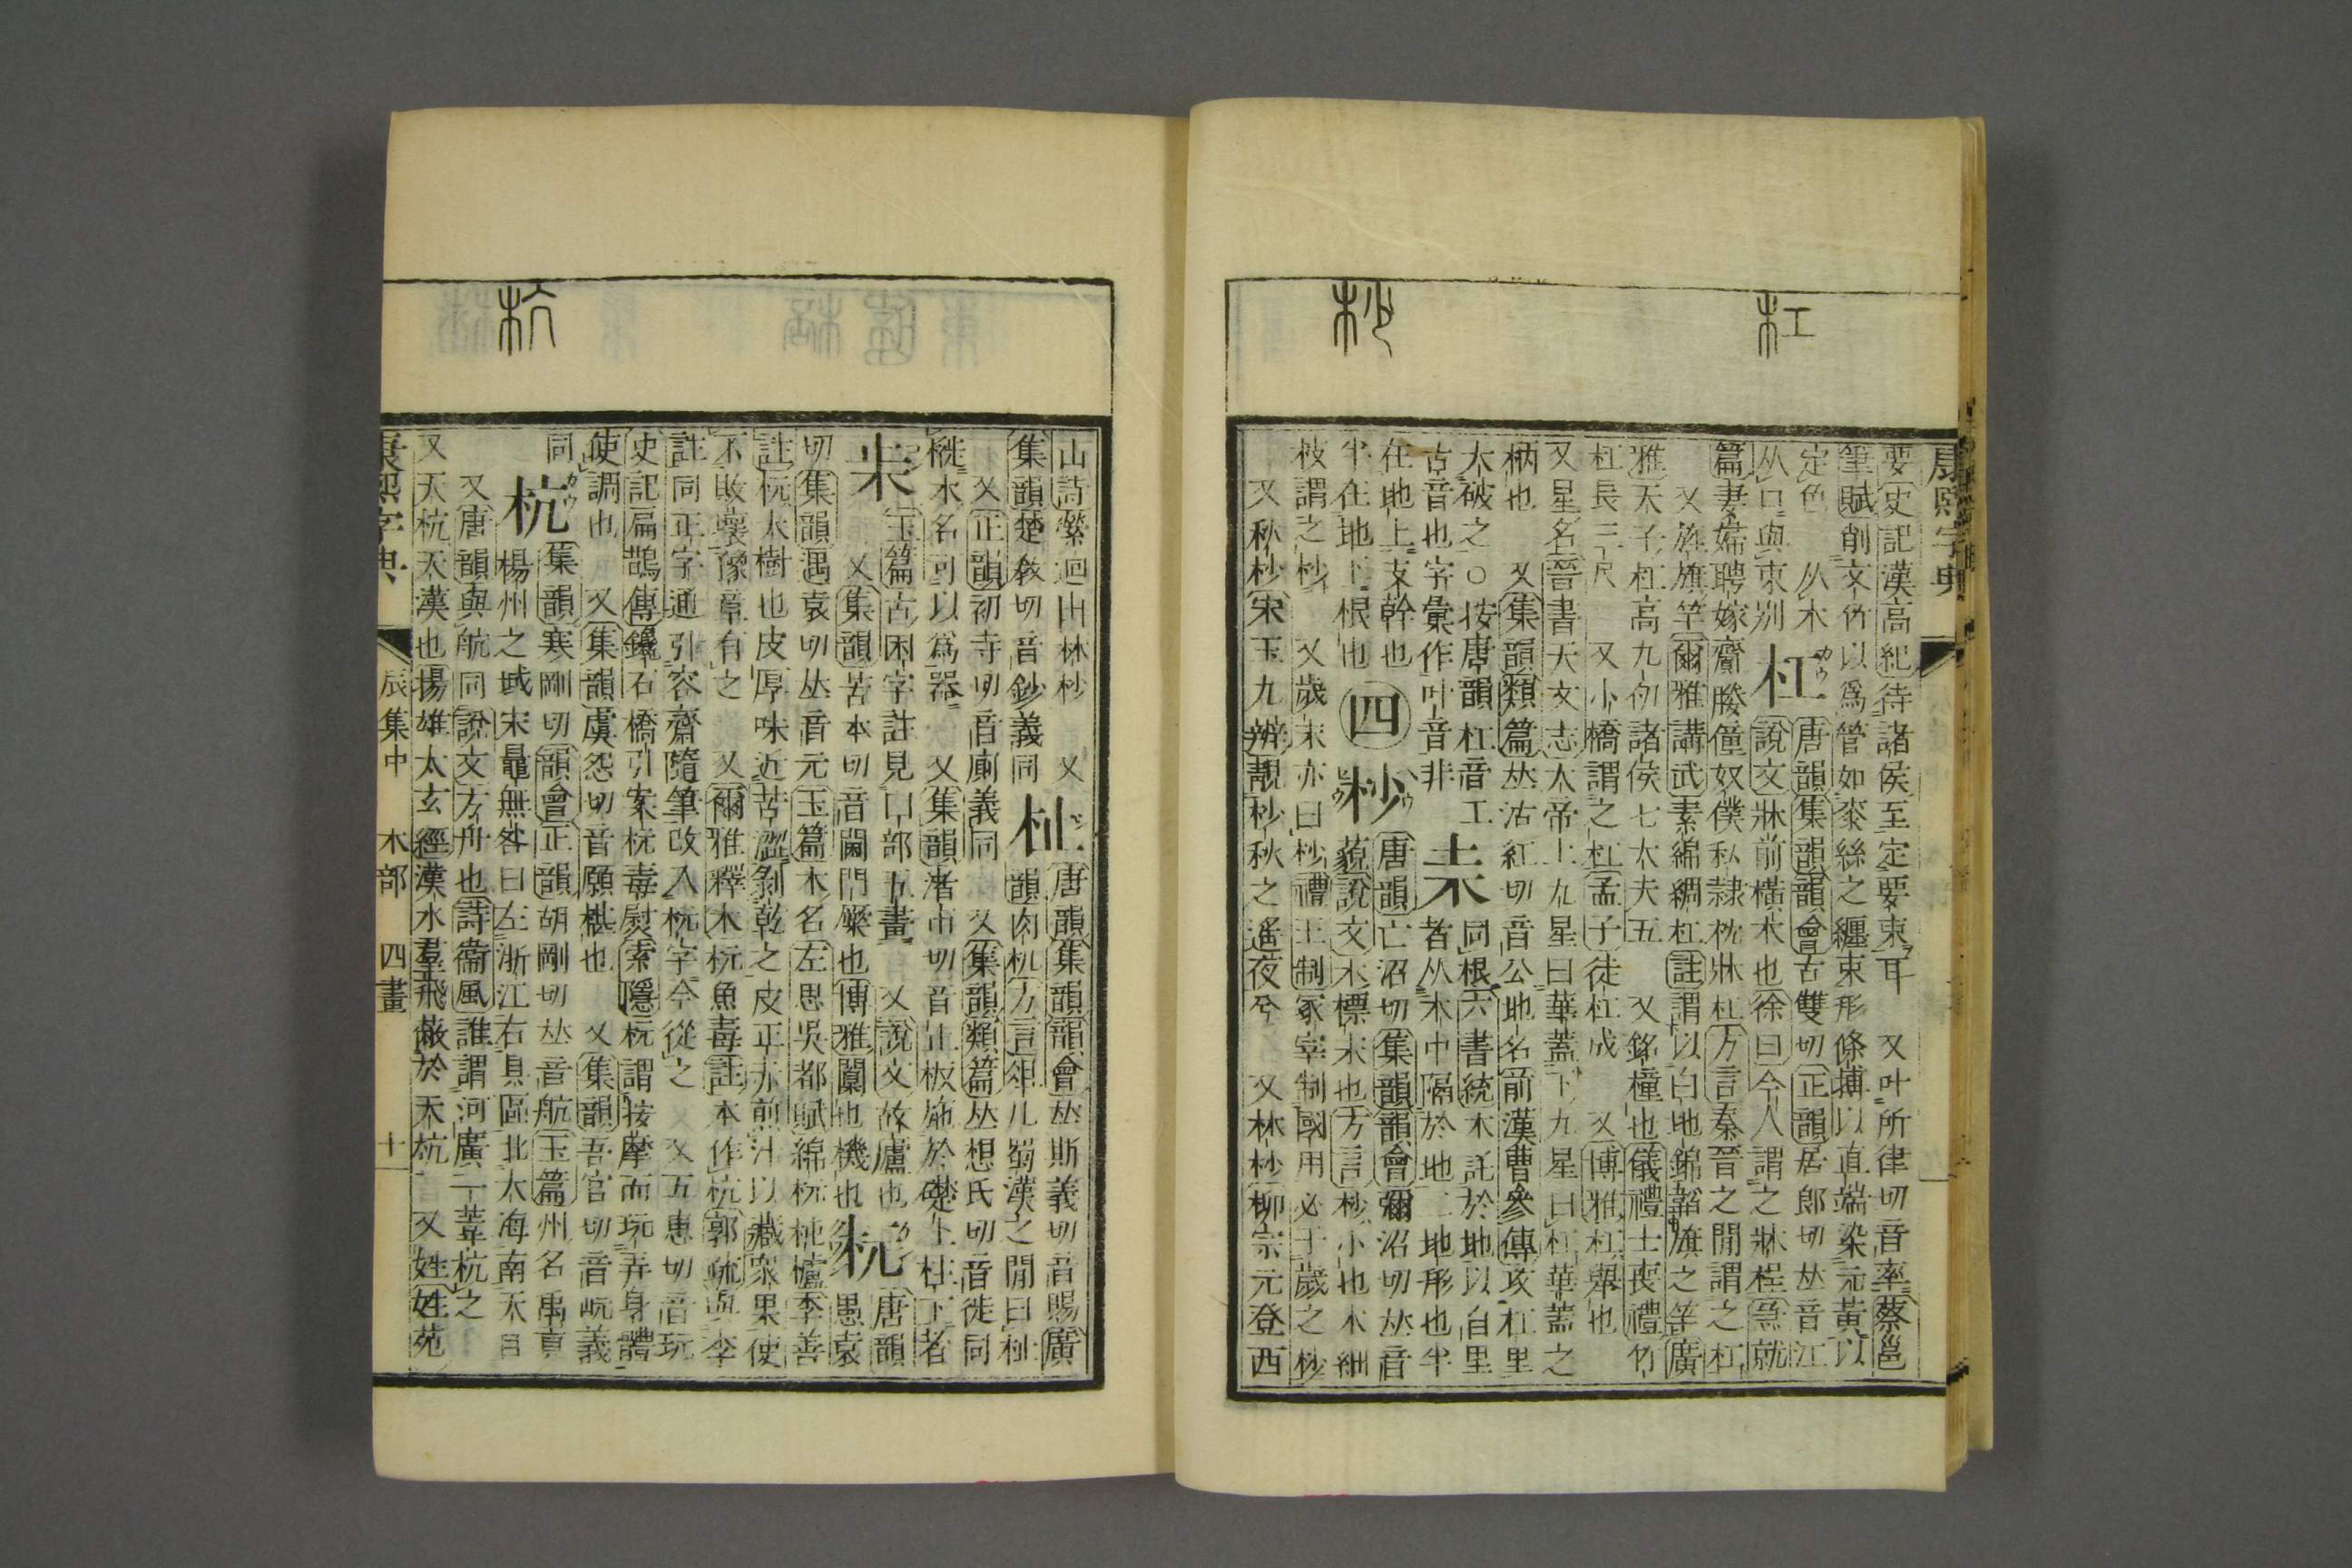 杠
杪
康熙字典
要史記漢高紀待諸侯至定要束耳 又叶所律切音率蔡邕
筆賦削文竹以爲管如桼絲之纏束形條摶以直端染元黃以
定色 从木 杠 唐韻集韻韻會古雙切正韻居郎切𠀤音江
从口與朿別 說文牀前橫木也徐曰今人謂之牀桯急就
篇妻婦聘嫁齎媵僮奴僕私隷枕牀杠方言秦晉之閒謂之杠
又旌旗竿爾雅講武素綿綢杠註謂以白地錦韜旗之竿廣
雅天子杠高九仞諸侯七大夫五 又銘橦也儀禮士喪禮竹
杠長三尺 又小橋謂之杠孟子徒杠成 又博雅杠舉也
又星名晉書天文志大帝上九星曰華蓋下九星曰杠華蓋之
柄也 又集韻類篇𠀤沽紅切音公地名前漢曹參傳攻杠里
大破之○按唐韻杠音工 同根六書統木託於地以自里
古音也字彙作叶音非 者从木中隔於地二地形也半
在地上支幹也 唐韻亡沼切集韻韻會彌沼切𠀤音
半在地下根也 四 杪 藐說文木標末也方言杪小也木細
枝謂之杪 又歲末亦曰杪禮王制冢宰制國用必于歲之杪
又秋杪宋玉九辨靚杪秋之遙夜兮 又林杪柳宗元登西
杭
山詩縈迴出林杪 又 唐韻集韻韻會𠀤斯義切音賜廣
集韻楚敎切音鈔義同 杫 韻肉机方言俎几蜀漢之閒曰杫
又正韻初寺切音廁義同 又集韻類篇𠀤想氏切音徙同
樅木名可以爲器 又集韻渚市切音止板施於礎上柱下者
玉篇古困字註見口部五畫 又說文故廬也 唐韻
朱 又集韻苦本切音閫門橜也博雅闑也機也 杬 愚袁
切集韻遇袁切𠀤音元玉篇木名左思吳都賦綿杬杶櫨李善
註杬大樹也皮厚味近苦澀剝乾之皮正赤煎汁以藏衆果使
不敗壞豫章有之 又爾雅釋木杬魚毒註本作杭郭疏與李
註同正字通引容齋隨筆改入杬字今從之 又五惠切音玩
史記扁鵲傳鑱石橋引案杬毒熨索隱杬謂按摩而玩弄身體
使調也 又集韻虞怨切音願椹也 又集韻吾官切音岏義
同 集韻寒剛切韻會正韻胡剛切𠀤音航玉篇州名禹貢
杭 楊州之域宋鼂無咎曰左浙江右具區北大海南天目
又唐韻與航同說文方舟也詩衞風誰謂河廣一葦杭之
又天杭天漢也揚雄太玄經漢水羣飛蔽於天杭 又姓姓苑
康熙字典 辰集中 木部 四畫 十